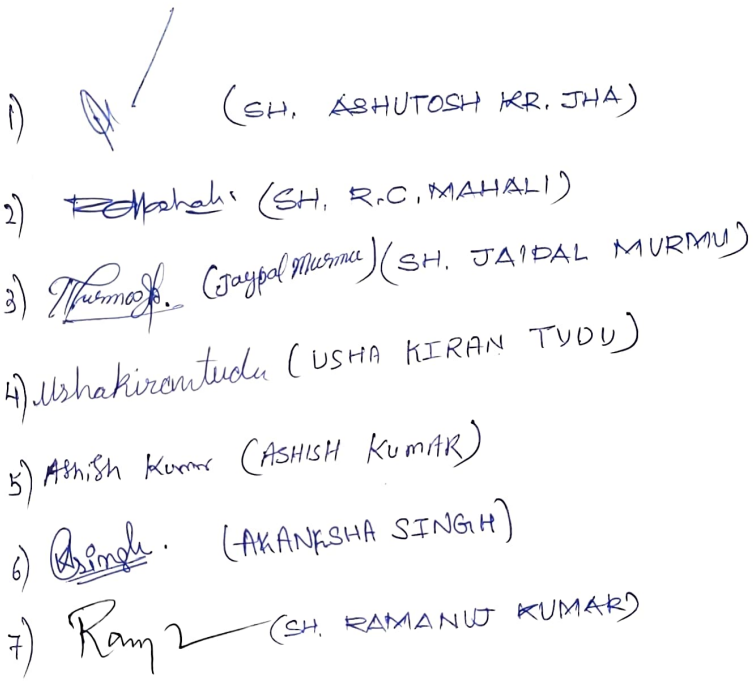 1) (SH. ASHUTOSH KR. JHA)
2) RCMahali (SH. R.C. MAHALI)
3) (Jaypal Murmu) (SH. JAIPAL MURMU)
4) Ushakirantudu (USHA KIRAN TUDU)
5) Ashish Kumar (ASHISH KUMAR)
6) Asingh. (AKANKSHA SINGH)
7) (SH. RAMANUJ KUMAR)